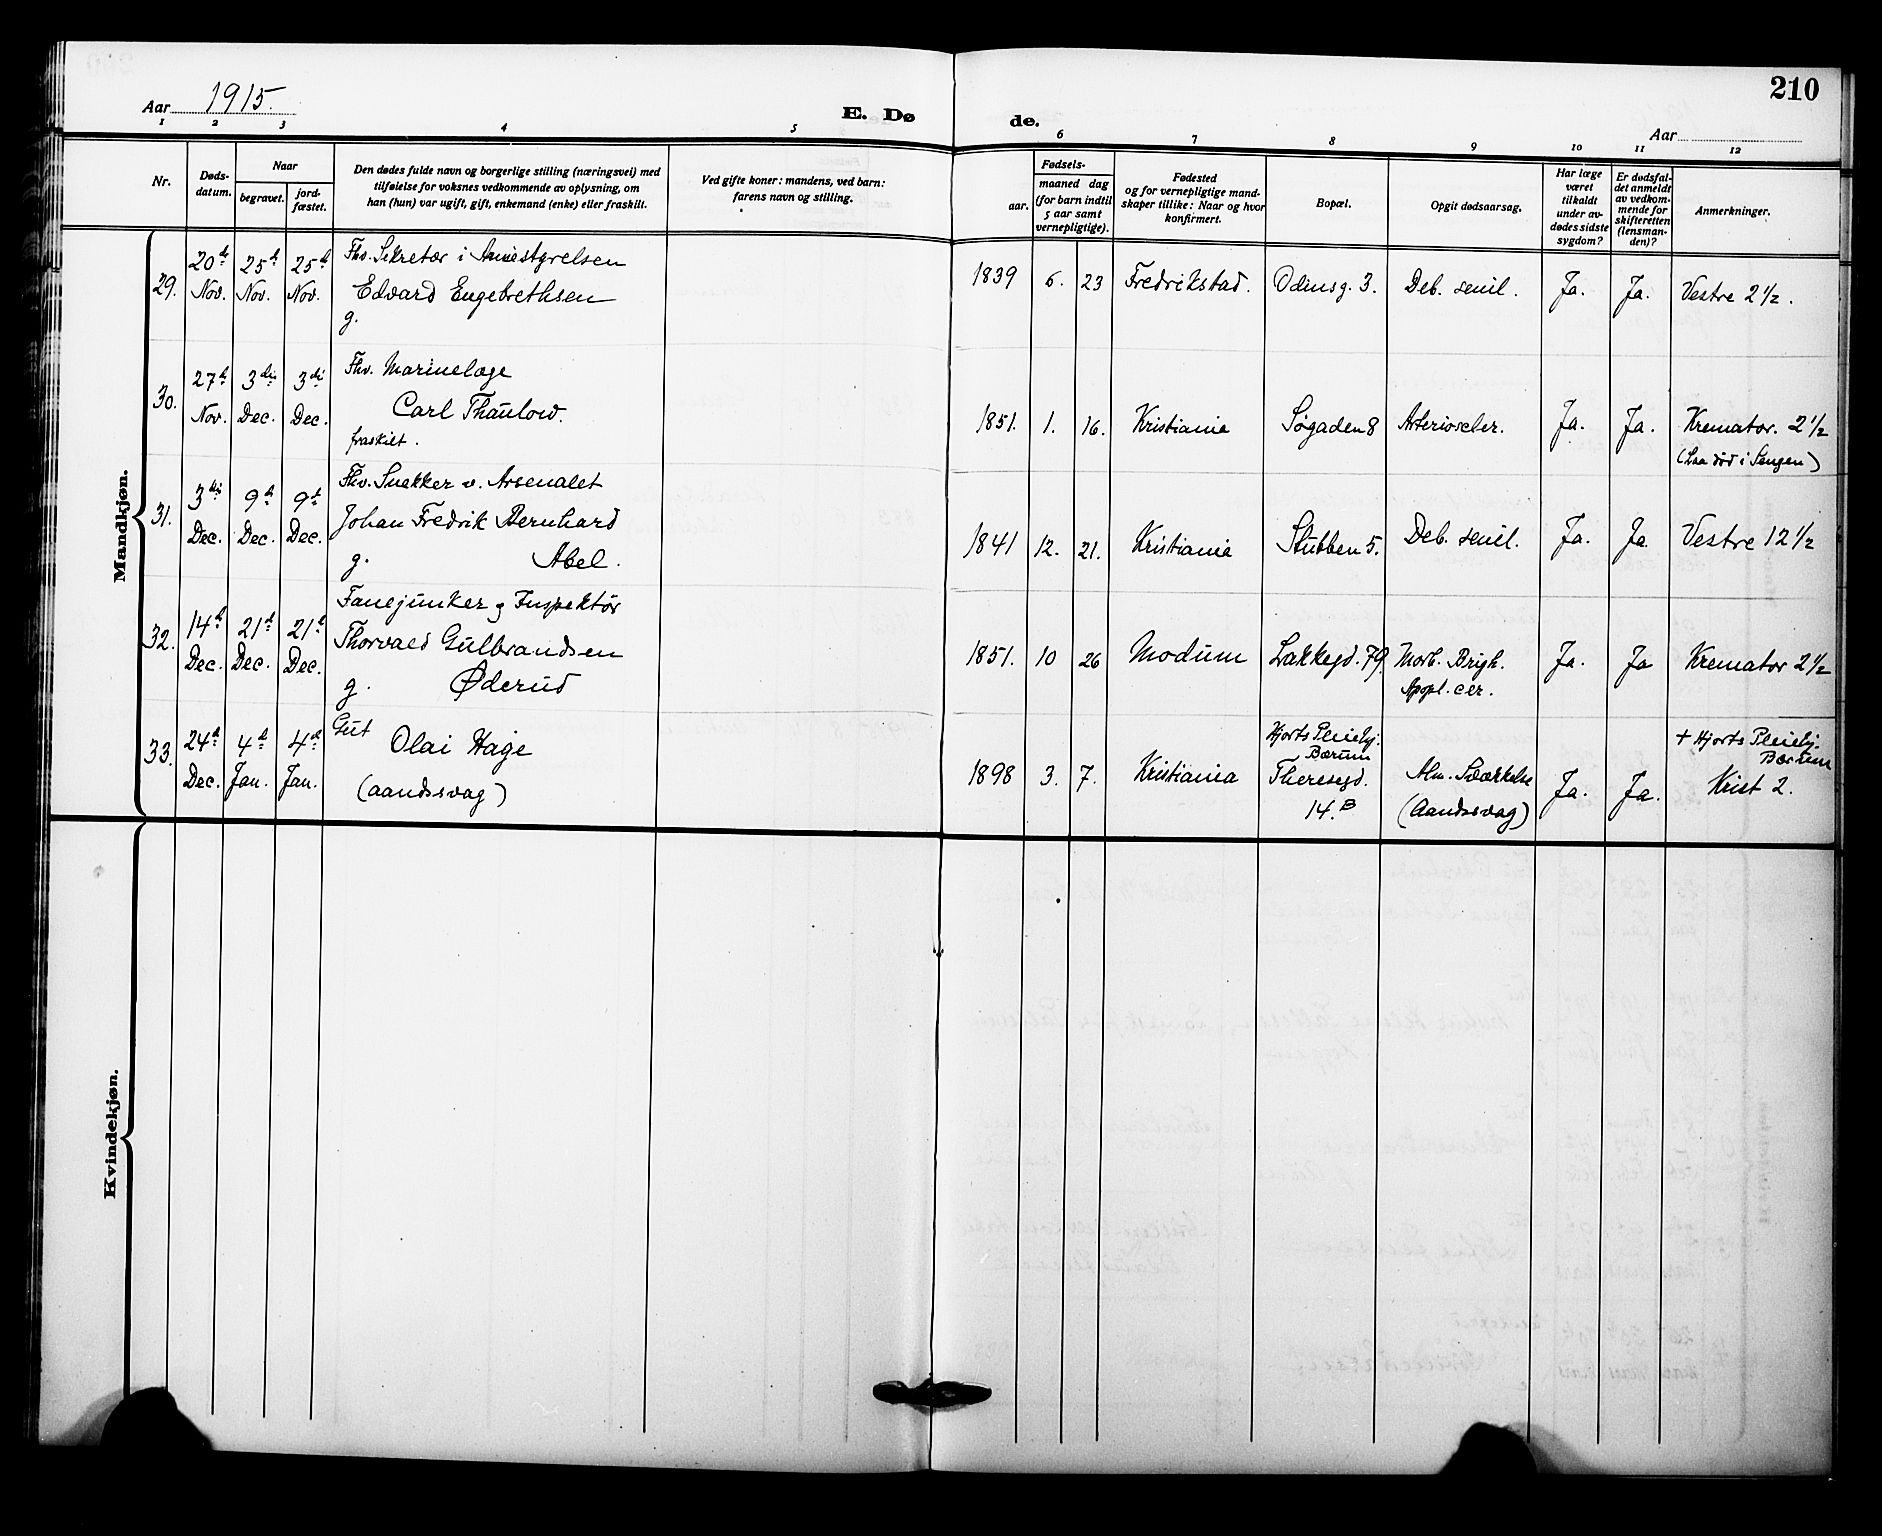 210
Aar 1915.
E. Dø de.
Aar
1 2 3 4 5 6 7 8 9 10 11 12
Nr.
Døds-
datum.
Naar
begravet.
jord-
fæstet.
Den dødes fulde navn og borgerlige stilling (næringsvei) med
tilføielse for voksnes vedkommende av oplysning, om
han (hun) var ugift, gift, enkemand (enke) eller fraskilt.
Ved gifte koner: mandens, ved barn:
farens navn og stilling.
Fødsels-
aar.
maaned dag
(for barn indtil
5 aar samt
vernepligtige).
Fødested
og for vernepligtige mand-
skaper tillike: Naar og hvor
konfirmert.
Bopæl.
Opgit dødsaarsag.
Har læge
været
tilkaldt
under av-
dødes sidste
sygdom?
Er dødsfal-
det anmeldt
av vedkom-
mende for
skifteretten
(lensman-
den)?
Anmerkninger.
Mandkjøn.
29.
20de
Nov.
25de
Nov.
25de
Nov.
Fhv. Sekretær i Armestyrelsen
Edvard Engebrethsen
g.
1839 6. 23 Fredrikstad. Odinsg. 3. Deb. senil. Ja. Ja. Vestre 2 1/2.
30.
27de
Nov.
3die
Dec.
3die
Dec.
Fhv. Marinelæge
Carl Thaulow.
fraskilt.
1851. 1. 16. Kristiania Søgaden 8 Arterioscler. Ja. Ja. Kremator. 2 1/2
(Laa død i Sengen)
31.
3die
Dec.
9de
Dec.
9de
Dec.
Fhv. Snekker v. Arsenalet
Johan Fredrik Bernhard
g. Abel.
1841 12. 21. Kristiania Stubben 5. Deb. senil. Ja. Ja. Vestre 12 1/2
32.
14de
Dec.
21de
Dec.
21de
Dec.
Fanejunker og Inspektør
Thorvald Gulbrandsen
g. Øderud
1851. 10 26 Modum Lakkegd. 79. Morb. Brigh. Ja. Ja Kremator 2 1/2
Apopl. cer.
33.
24de
Dec.
4de
Jan.
4de
Jan.
Gut Olai Hage
(aandssvag)
Hjorts Pleiehj.
Bærum
1898 3. 7. Kristiania Theresegd.
14.B
Alm. Svækkelse
(Aandssvag)
Ja. Ja.
+ Hjorts Pleiehj.
Bærum
Krist 2.
Kvindekjøn.